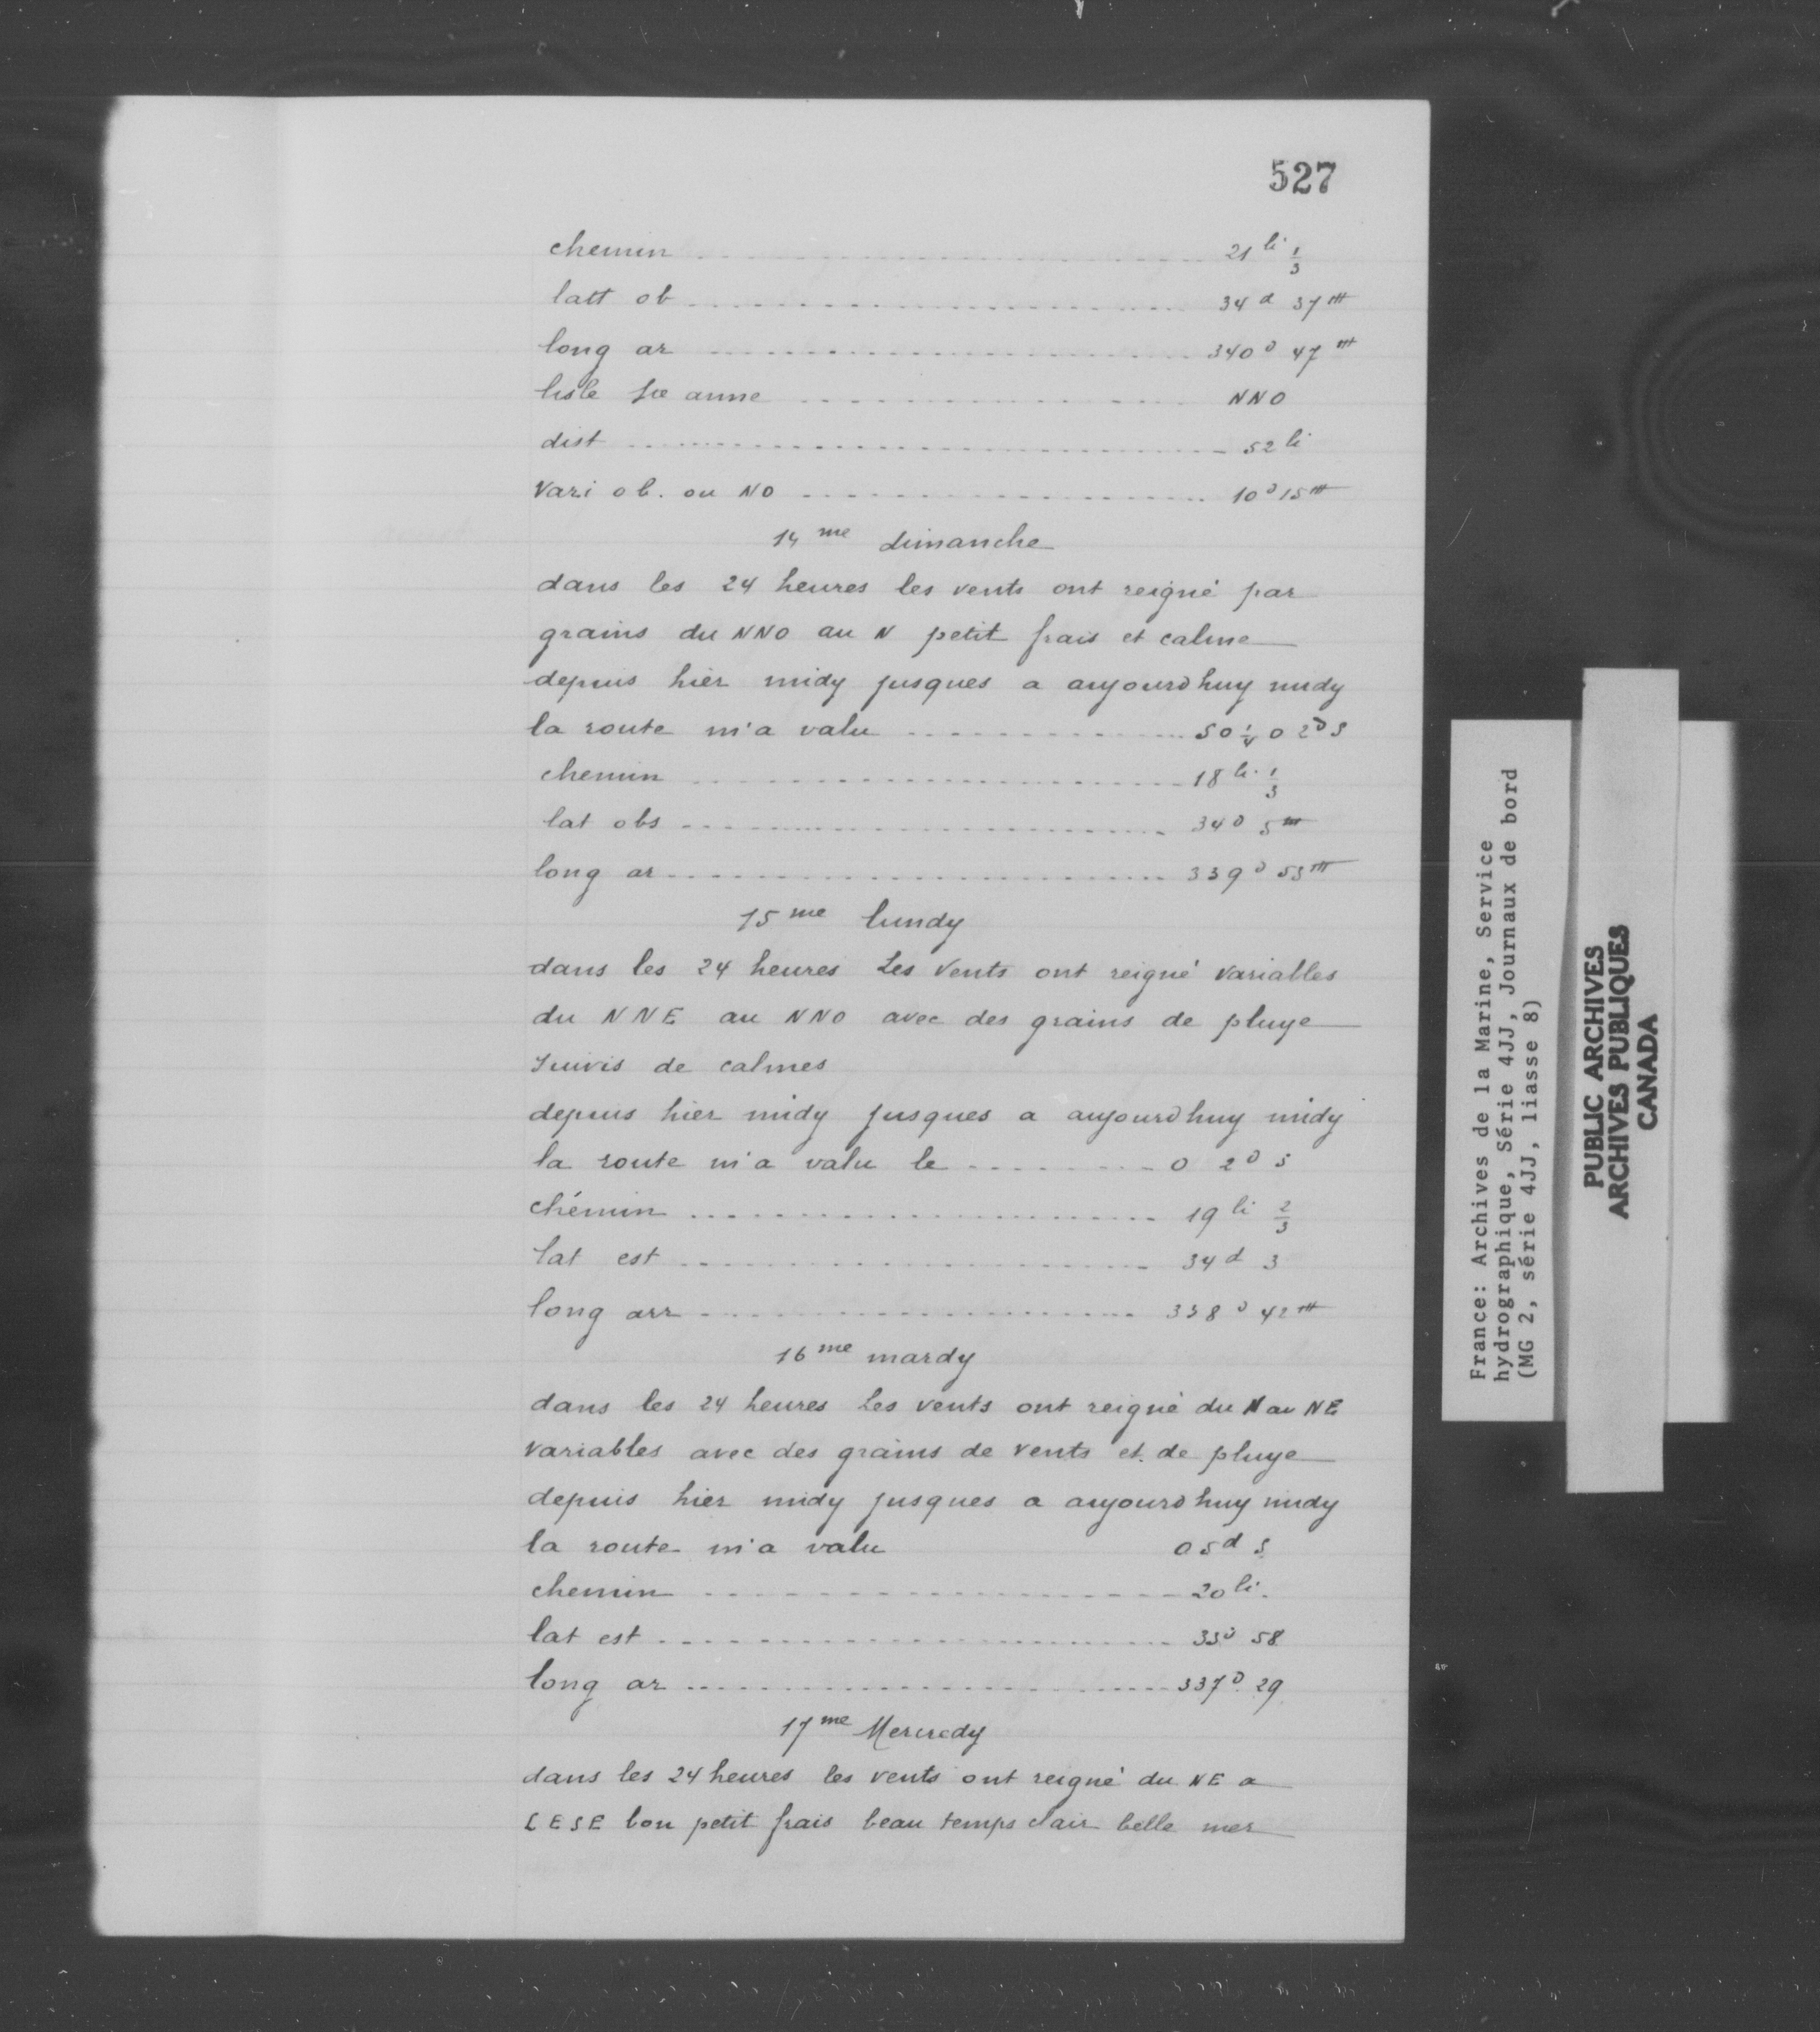 527
chemin ........ 21 li 1/3
latt ob ........ 34 d 37 m
long ar ........ 340 D 47 m
lisle Ste anne ........ NNO
dist ........ 52 li
Vari ob. ou NO ........ 10 D 15 m
14 me dimanche
dans les 24 heures les vents ont reigné par
grains du NNO au N petit frais et calme
depuis hier midy jusques a aujourdhuy midy
la route m'a valu ........ SO 1/4 O 2 D S
chemin ........ 18 li. 1/3
lat obs ........ 34 D 5 m
long ar ........ 339 D 53 m
15 me lundy
dans les 24 heures Les Vents ont reigné variables
du NNE au NNO avec des grains de pluye
suivis de calmes
depuis hier midy jusques a aujourdhuy midy
la route m'a valu le ........ O 2 D S
chémin ........ 19 li 2/3
lat est ........ 34 d 3
long arr ........ 338 D 42 m
16 me mardy
dans les 24 heures Les vents ont reigné du N au NE
variables avec des grains de vents et de pluye
depuis hier midy jusques a aujourdhuy midy
la route m'a valu O 5 d S
chemin ........ 20 li.
lat est ........ 33 D 58
long ar ........ 337 D 29
17 me Mercredy
dans les 24 heures les vents ont reigné du NE a
LESE bon petit frais beau temps clair belle mer
France: Archives de la Marine, Service
hydrographique, Série 4JJ, Journaux de bord
(MG 2, série 4JJ, liasse 8)
PUBLIC ARCHIVES
ARCHIVES PUBLIQUES
CANADA